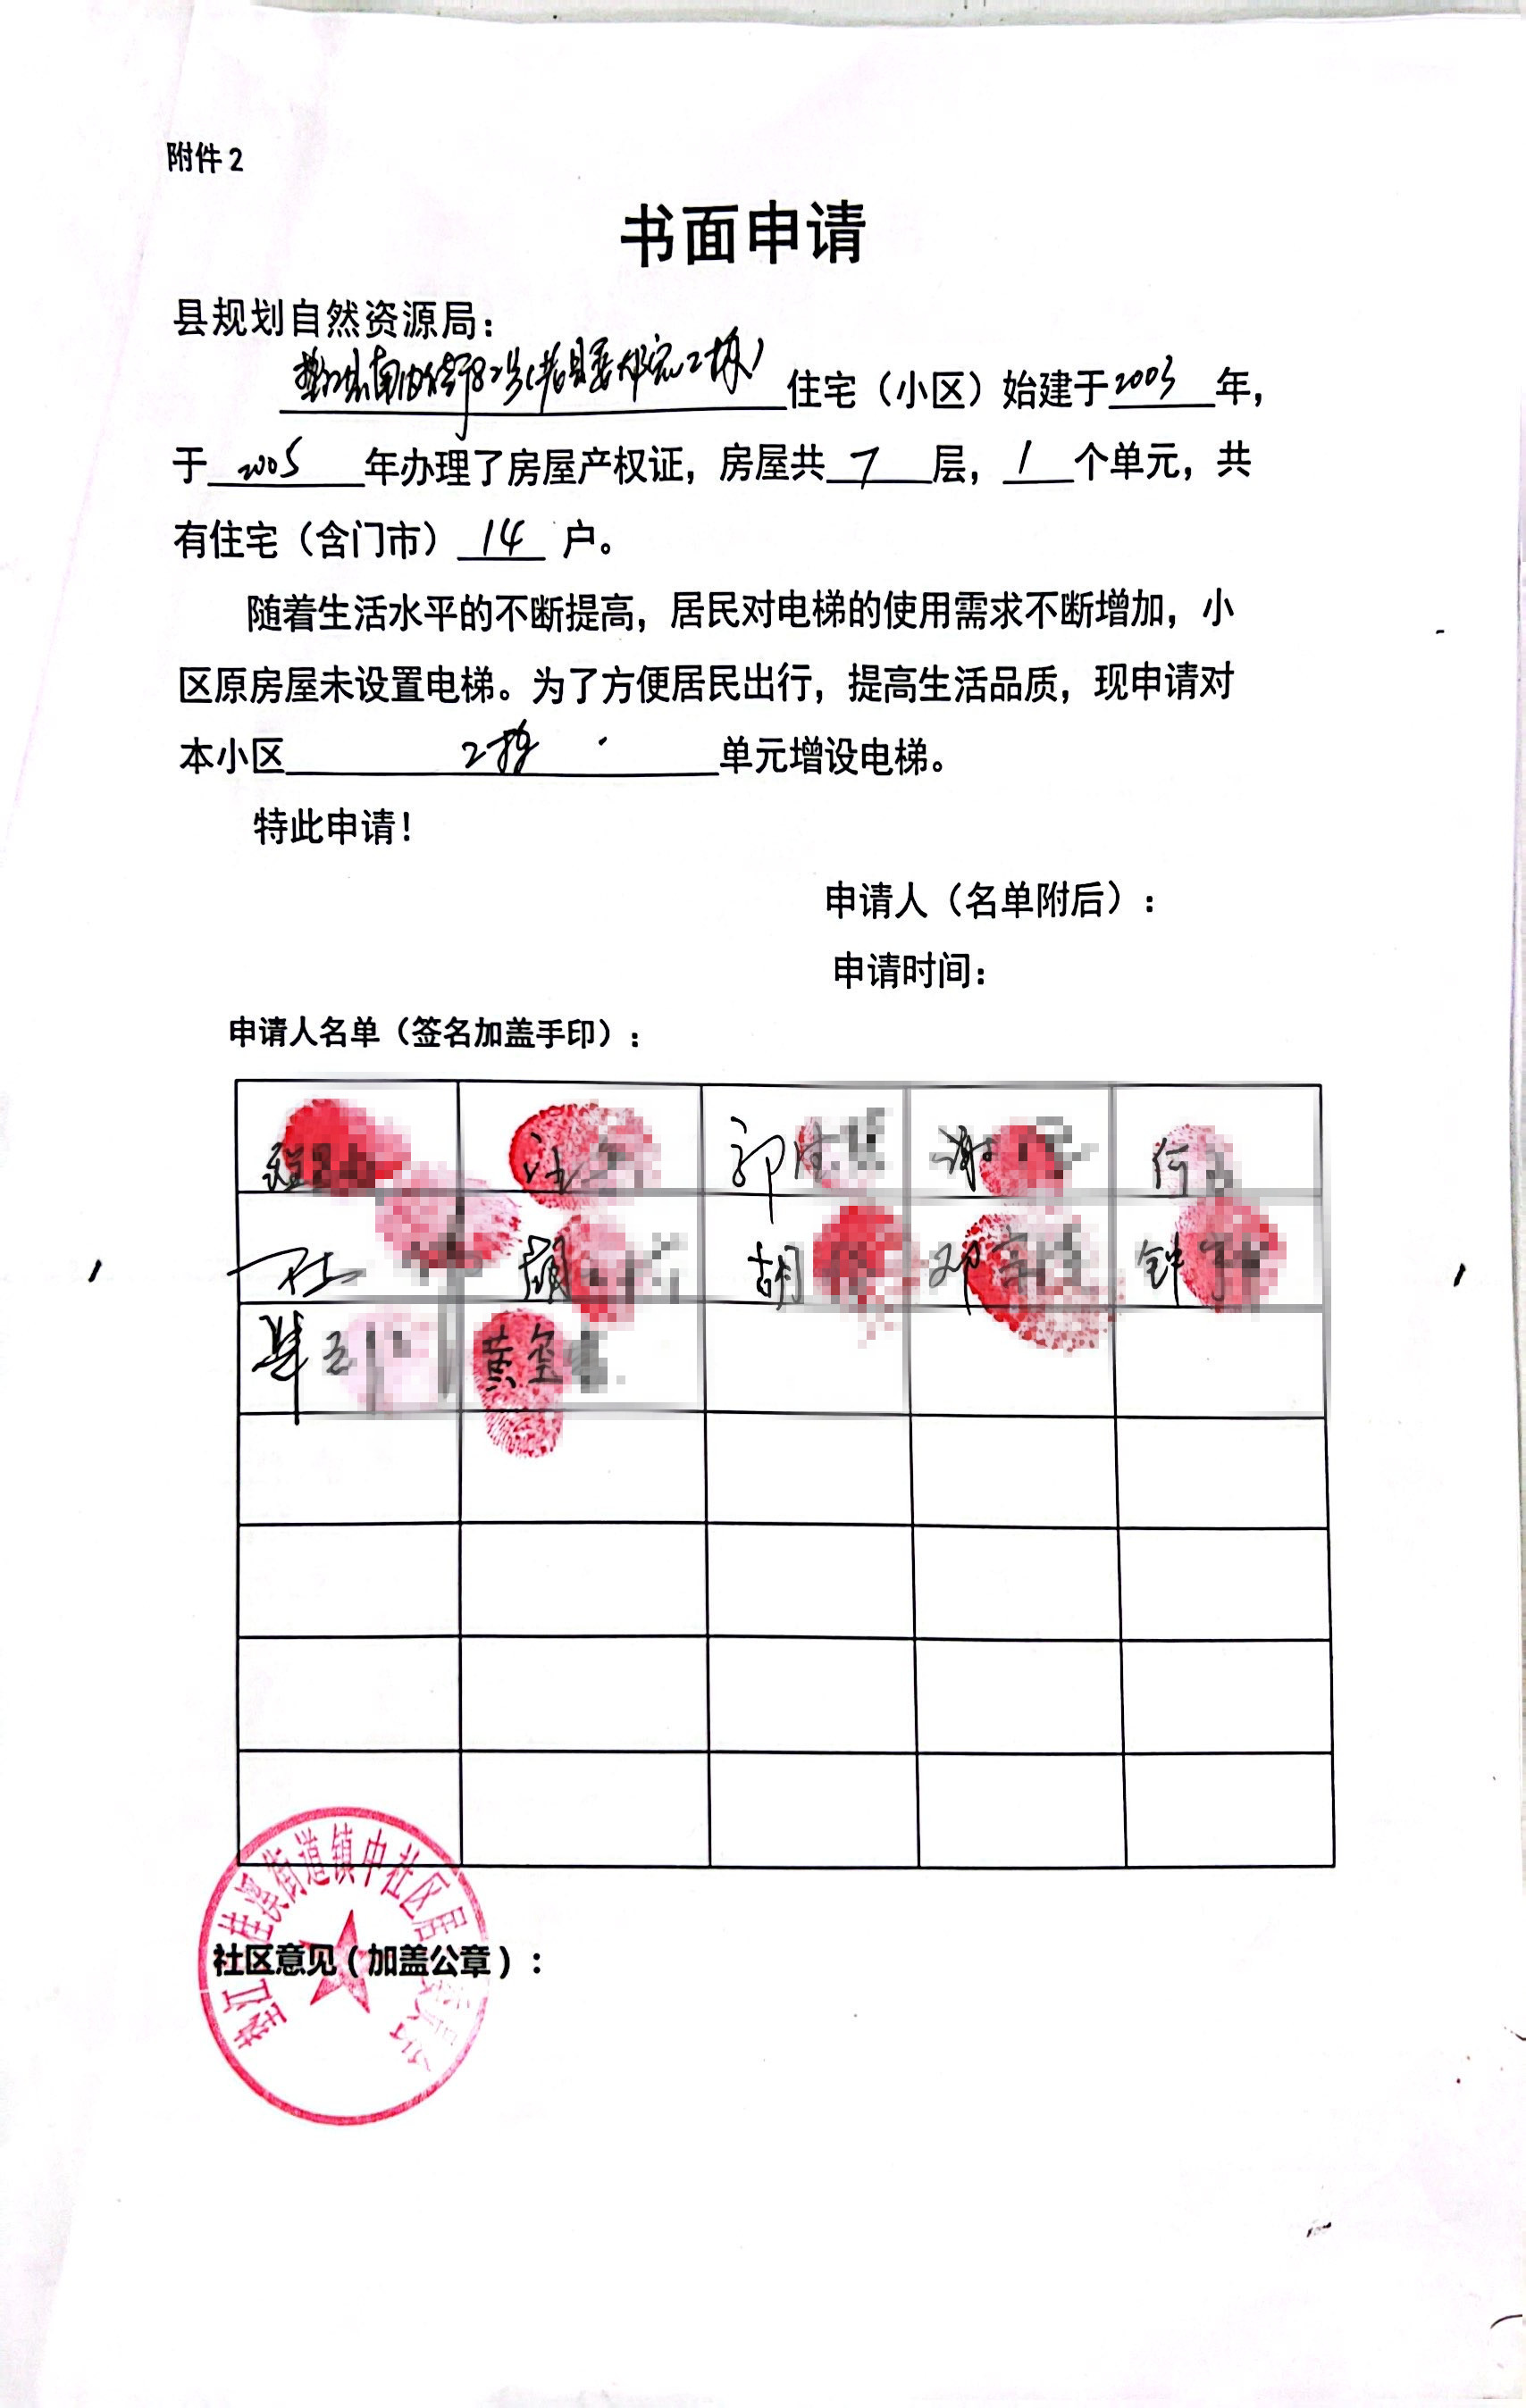 附件2
书面申请
县规划自然资源局：
垫江县南内街82号(老县委大院2栋)住宅（小区）始建于2003年，
于2005年办理了房屋产权证，房屋共7层，1个单元，共
有住宅（含门市）14户。
随着生活水平的不断提高，居民对电梯的使用需求不断增加，小
区原房屋未设置电梯。为了方便居民出行，提高生活品质，现申请对
本小区2栋单元增设电梯。
特此申请！
申请人（名单附后）：
申请时间：
申请人名单（签名加盖手印）：
郭 谢 何
杜 胡 胡 邓 钟
黄
社区意见（加盖公章）：
垫江 桂溪街道镇中社区居 委员